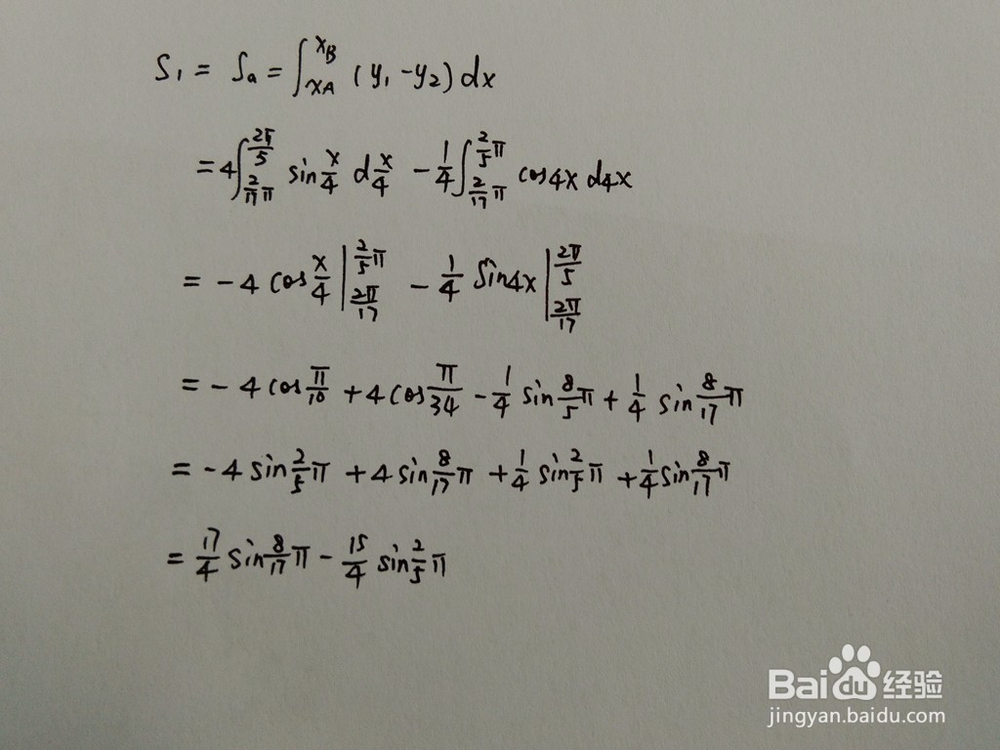 S₁ = Sₐ = ∫_{x_A}^{x_B} (y₁ - y₂) dx
= 4∫_{2/17 π}^{2π/5} sin x/4 d x/4 - 1/4 ∫_{2/17 π}^{2/5 π} cos4x d4x
= -4 cos x/4 |_{2π/17}^{2/5 π} - 1/4 sin4x |_{2π/17}^{2π/5}
= -4 cos π/10 + 4 cos π/34 - 1/4 sin 8/5 π + 1/4 sin 8/17 π
= -4 sin 2/5 π + 4 sin 8/17 π + 1/4 sin 2/5 π + 1/4 sin 8/17 π
= 17/4 sin 8/17 π - 15/4 sin 2/5 π
Baidu 经验
jingyan.baidu.com